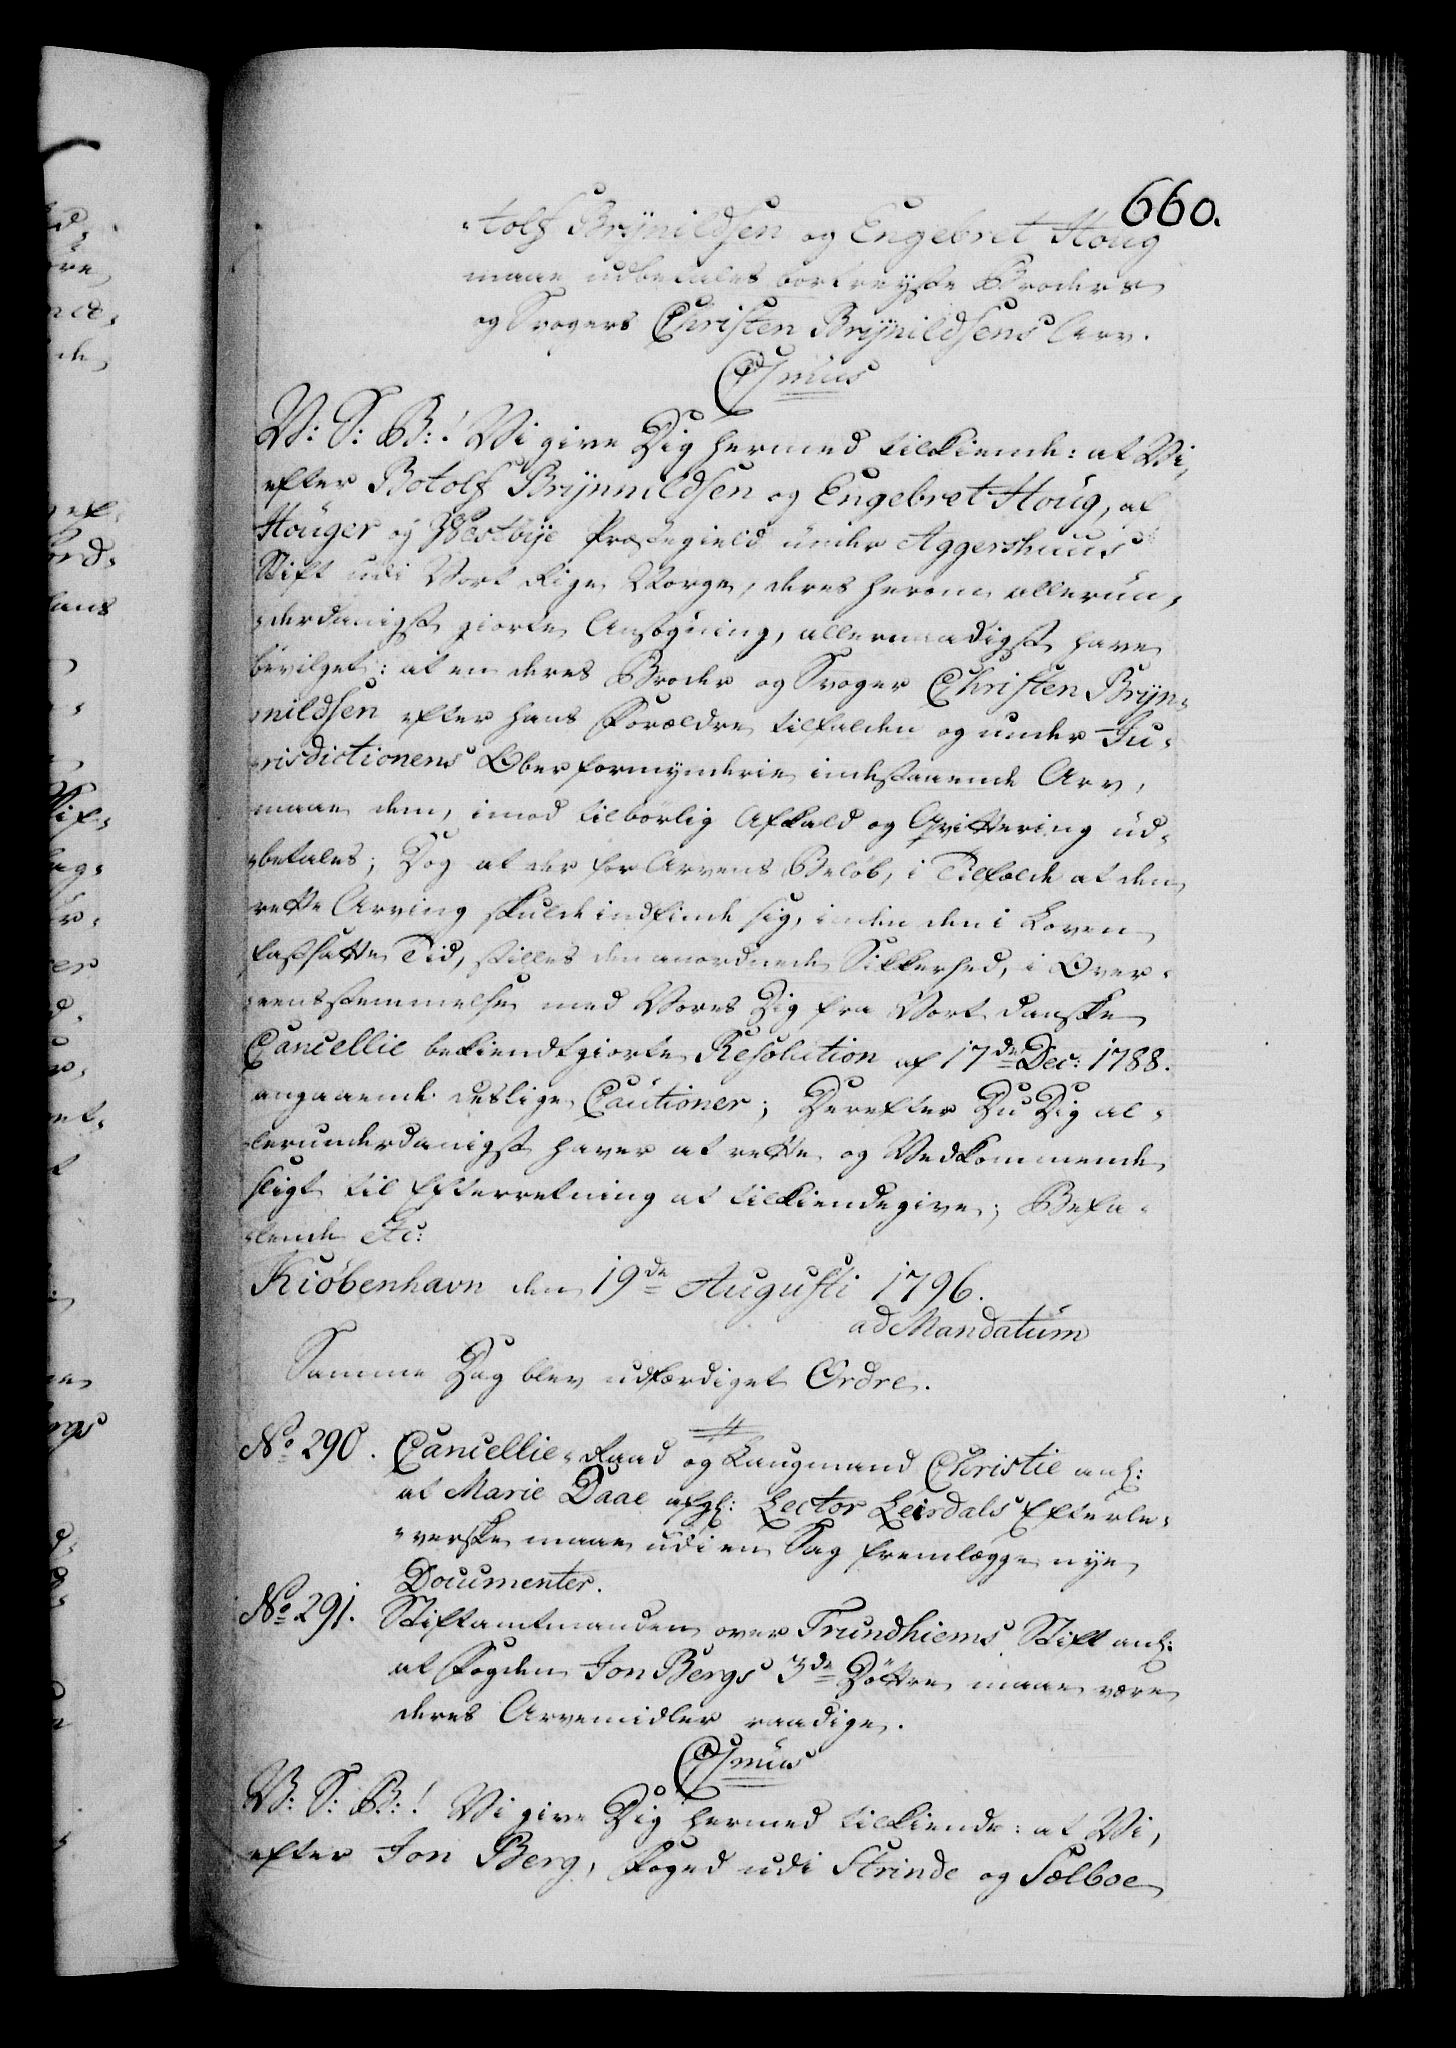 660.
-tolf Brÿnildsen og Engebret Houg
maae udbetales bortreyste Broders
og Svogers Christen Brÿnildsens Arv.
C: 7mus
V: S: B:! Vi give Dig hermed tilkiende: at Vi,
efter Botolf Brÿnnildsen og Engebret Houg, af
Houger og Westbÿe Præstegield under Aggershuus
Stift udi Vort Rige Norge, deres herom allerun-
-derdanigst giorte Ansøgning, allernaadigst have
bevilget: at en deres Broder og Svoger Christen Brÿn-
-nildsen efter hans Forældre tilfalden og under Ju-
-risdictionens Oberformynderie indestaaende Arv,
maae dem, imod tilbørlig Afkald og Qvittering ud-
-betales; Dog at der for Arvens Beløb, i Tilfælde at den
rette Arving skulde indfinde sig, inden den i Loven
fastsatte Tid, stilles den anordnede Sikkerhed, i Over-
-eensstemmelse med Vores Dig fra Vort danske
Cancellie bekiendtgiorte Resolution af 17de Dec: 1788.
angaaende deslige Cautioner; Derefter Du Dig al-
-lerunderdanigst haver at rette og Vedkommende
sligt til Efterretning at tilkiendegive; Befa-
-lende Etc:
Kiøbenhavn den 19de Augusti 1796.
ad Mandatum
Samme Dag blev udfærdiget Ordre.
No 290. Cancellie-Raad og Laugmand Christie anl:
at Marie Daae afgl: Lector Leirdals Efterle-
-verske maae udi en Sag fremlægge nye
Documenter.
No 291. Stiftamtmanden over Trundhiems Stift anl:
at Fogden Jon Bergs 3de Døttre maae være
deres Arvemidler raadige.
C: 7mus
V: S: B:! Vi give Dig hermed tilkiende: at Vi,
efter Jon Berg, Foged udi Strinde og Sælboe